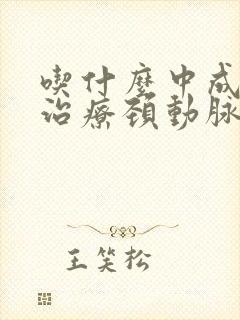 喫什麼中成
治療頸動脈
王笑松